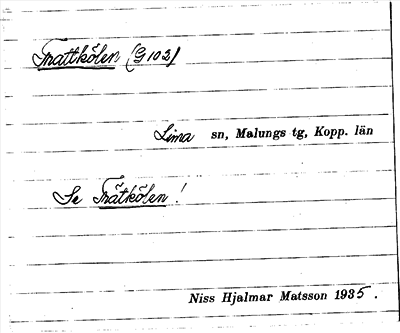 Trattkölen (G 102)
Lima sn, Malungs tg, Kopp. län
Se Trätkölen !
Niss Hjalmar Matsson 1935.